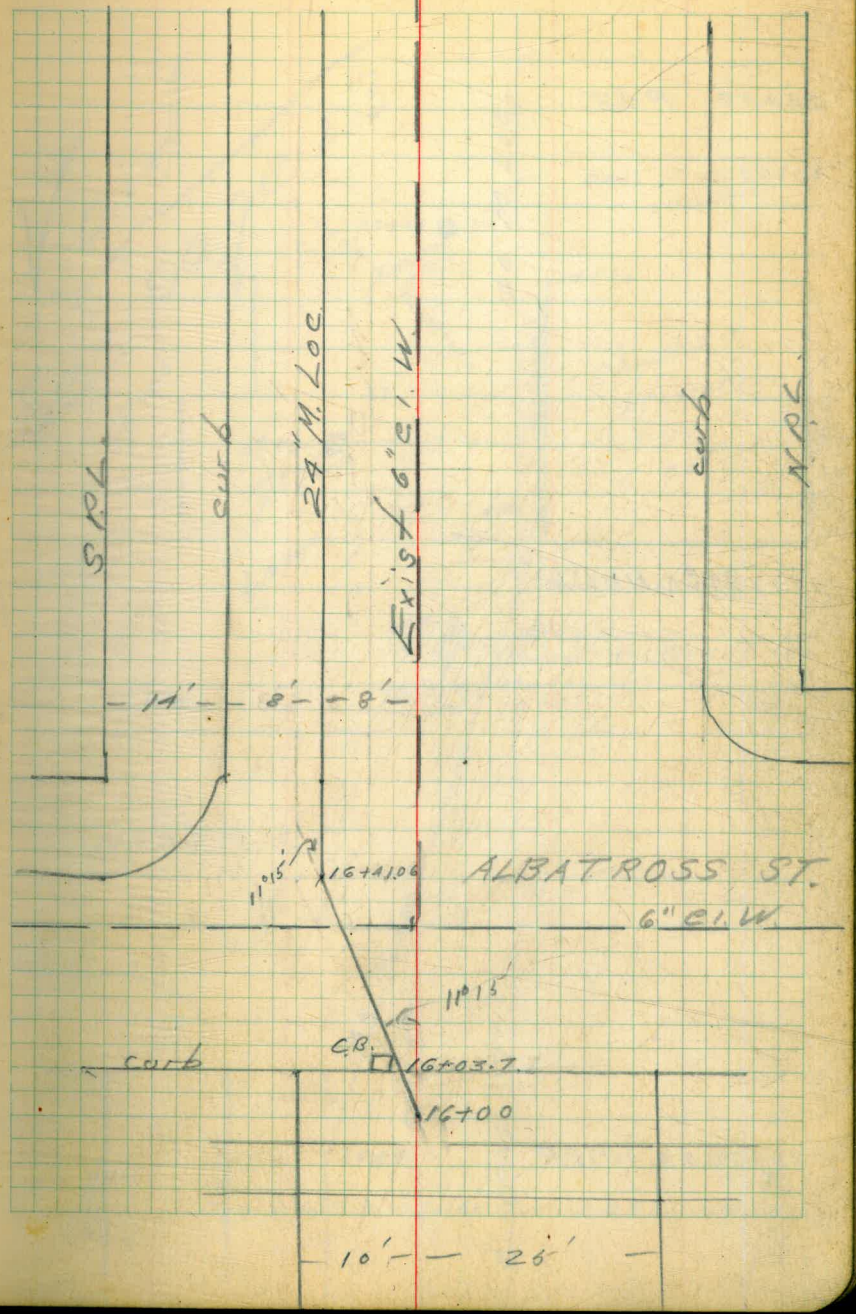 S.P.L.
curb
24" M. Loc.
Exist 6" C.I.W.
curb
N.P.L.
14'
8'
8'
11°15'
16+41.06
ALBATROSS ST.
6" C.I.W.
11°15'
C.B.
curb
16+03.7
16+00
10'